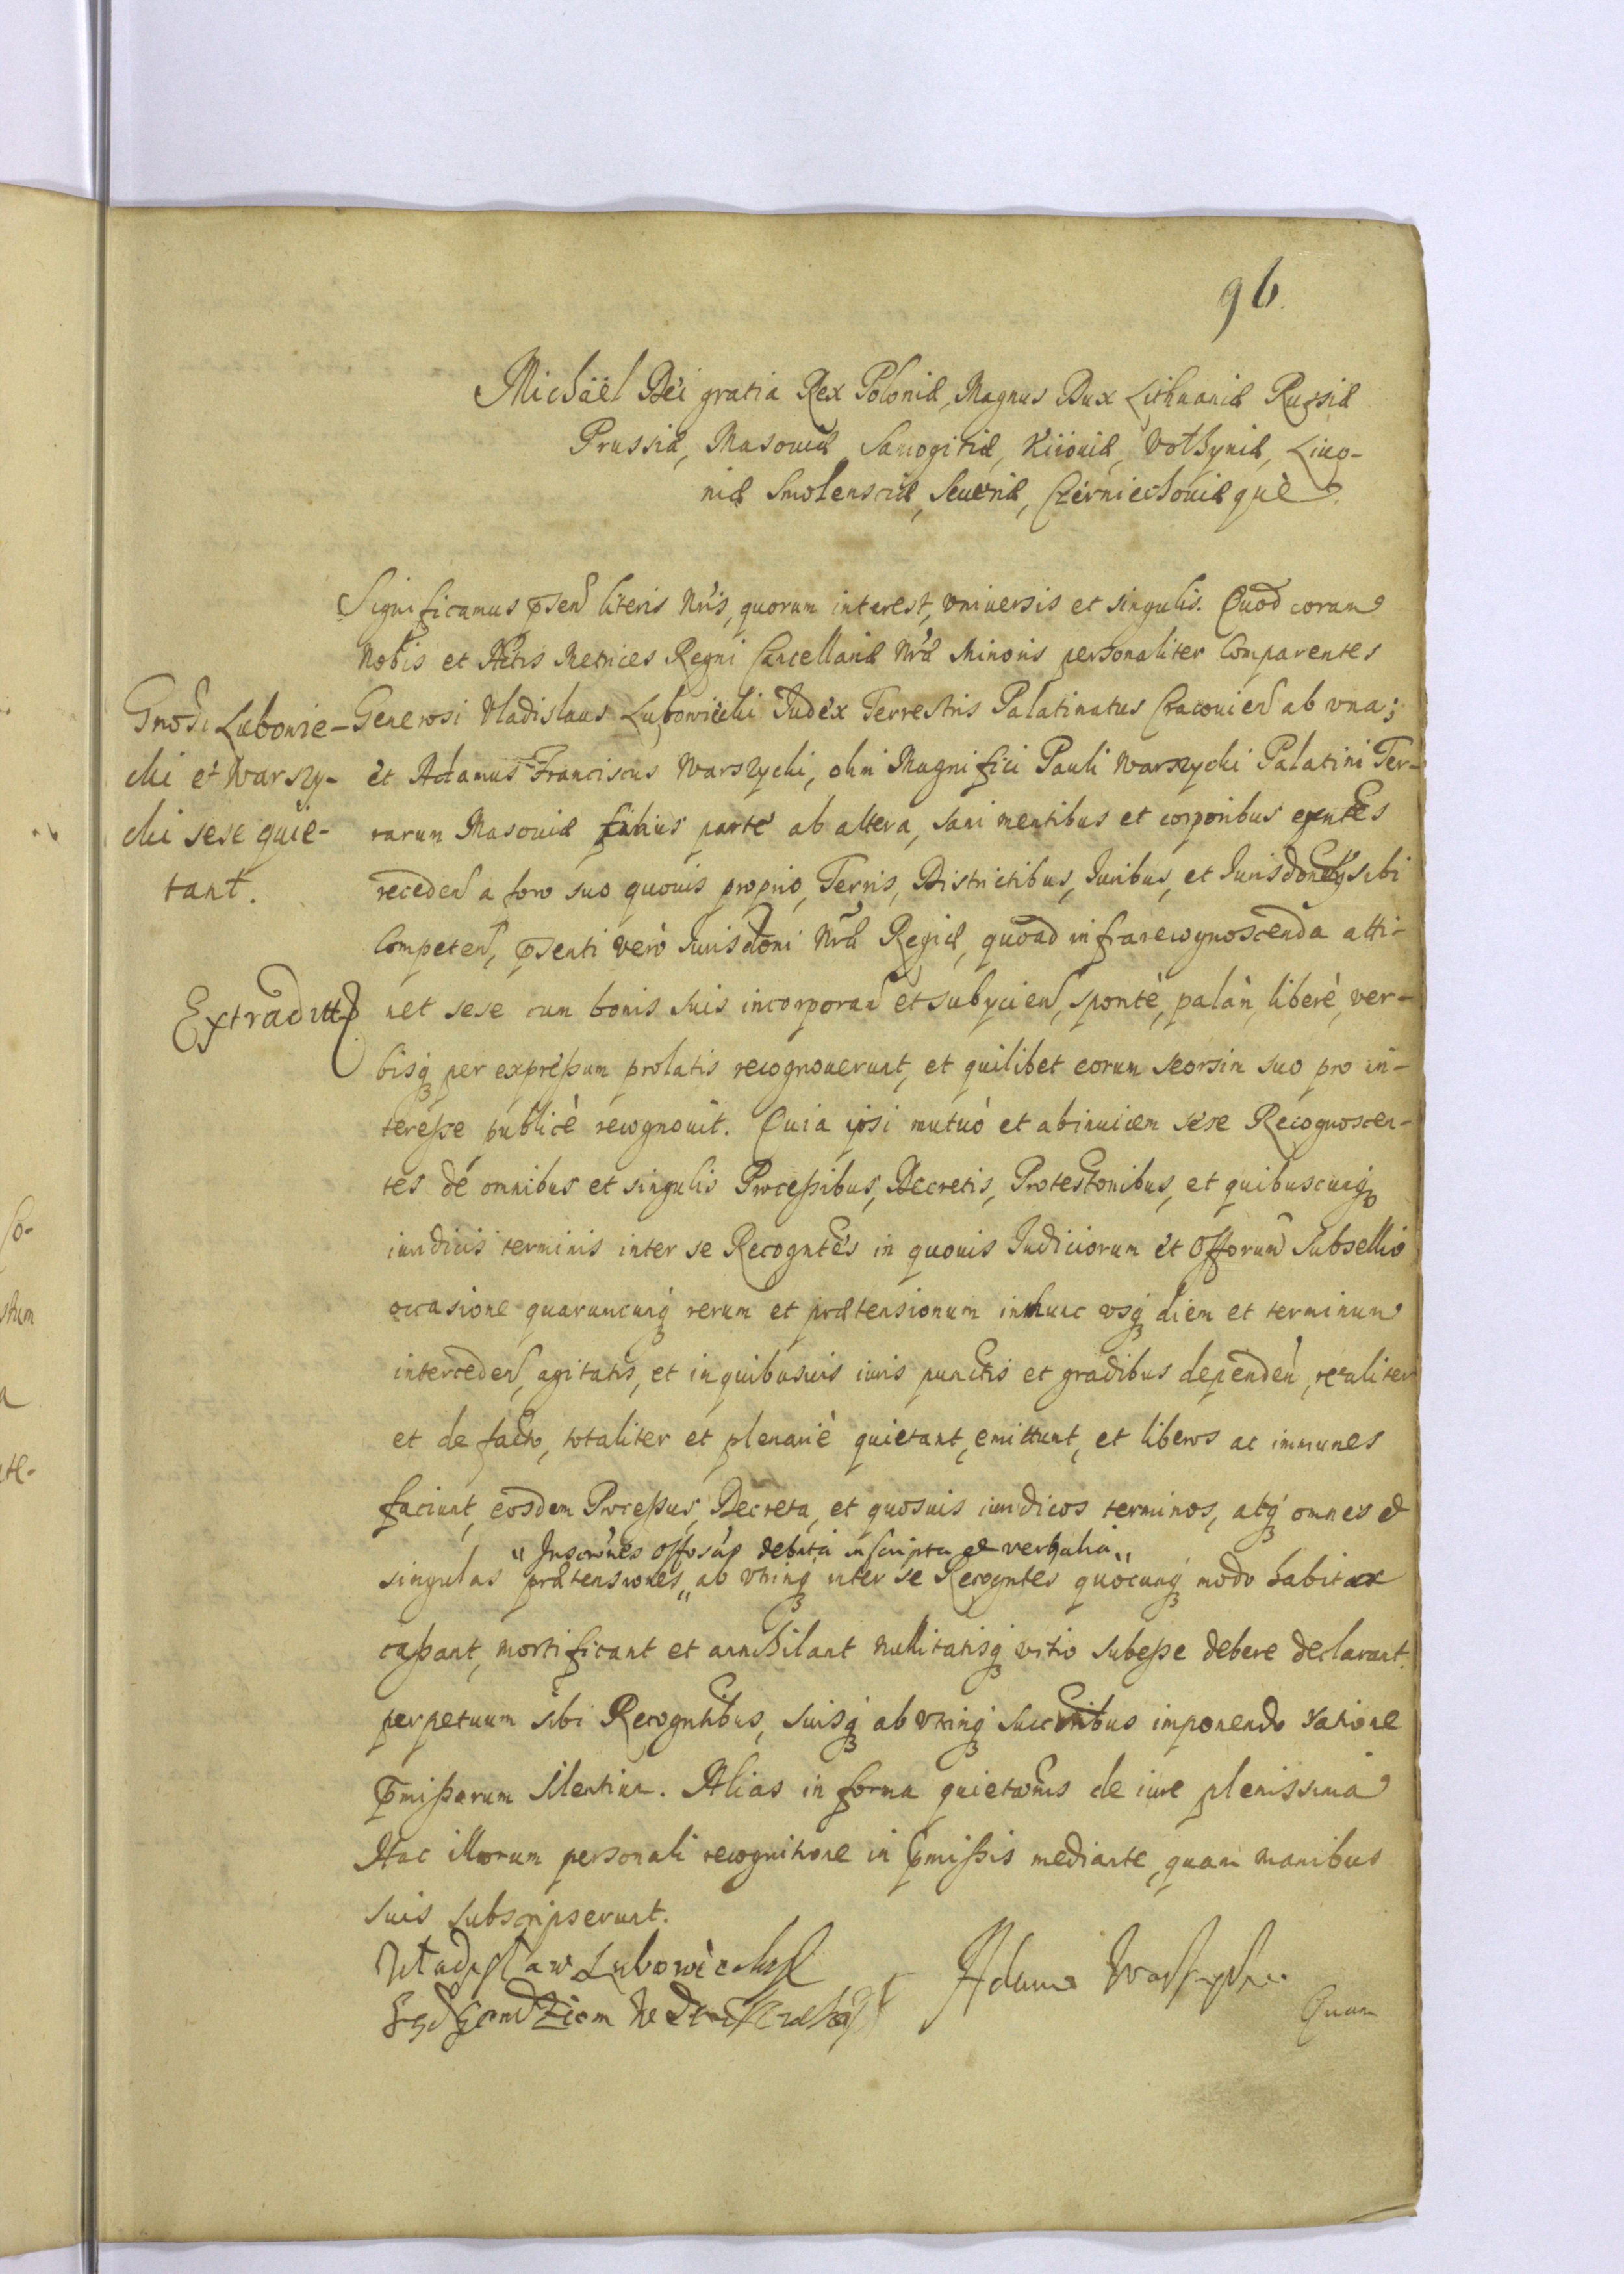 96.
Michäel Dei gratia Rex Poloniæ, Magnus Dux Lithuaniæ Russiæ
Prussiæ, Masouiæ Samogitiæ, Kiiouiæ, Volhyniæ, Liuo-
niæ Smolensciæ, Seueriæ, Czerniechouiæquè.
Significamus p̃sen̄ literis Nr̃is, quorum interest, vniuersis et singulis. Quod coram
Nobis et Actis Metrices Regni Cancellariæ Nr̃æ Minoris personaliter Comparentes
Gnosi Lubowie-
cki et Warszy-
cki sese quie-
tant.
Generosi Vladislaus Lubowiecki Judex Terrestris Palatinatus Cracouien̄ ab vna;
et Adamus Franciscus Warszycki, olim Magnifici Pauli Warszycki Palatini Ter-
rarum Masouiæ filius parte ab altera, sani mentibus et corporibus exn̄tes
receden̄ a foro suo quouis proprio, Terris, Districtibus, Iuribus, et Iurisdōnibȝ sibi
Competen̄, p̃senti verò Iurisdōni Nr̃æ Regiæ, quoad infrarecognoscenda atti-
Extradittȝ
net sese cum bonis suis incorporan̄ et subycien̄, spontè, palàm, liberè, ver-
bisqȝ per expreßum prolatis recognouerunt, et quilibet eorum seorsim suo pro in-
tereße publicè recognouit. Quia ipsi mutuò et abinuicem sese Recognoscen-
tes de omnibus et singulis Proceßibus, Decretis, Protestōnibus, et quibuscunqȝ
iuridicis terminis inter se Recogntēs in quouis Iudiciorum et Offorum̄ Subsellio
occasione quaruncunqȝ rerum et prætensionum inhunc vsqȝ diem et terminum
interceden̄, agitatis, et inquibusuis iuris punctis et gradibus dependen̄, realiter
et de facto, totaliter et plenariè quietant, emittunt, et liberos ac immunes
faciunt, eosdem Proceßus, Decreta, et quosuis iuridicos terminos, atqȝ omnes et
"Inscrōnes debita inscripta et verbalia"
singulas prætensiones" ab vtrinqȝ inter se Recogntes quocunqȝ modo habitas
caßant, mortificant et annihilant nullitatisqȝ vitio subeße debere declarant.
perpetuum sibi Recogntibus, suisqȝ ab vtrinqȝ succr̄ibus imponendo ratione
p̃mißorum silentium. Alias in forma quietaōnis de iure plenissima
Hac illorum personali recognitione in p̃mißis mediante, quam manibus
suis subscripserunt.
Wladysław Lubowiecky
Adam Warszycki
Quam